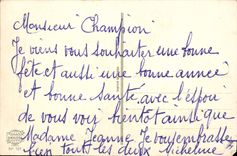 Monsieur Champion
Je viens vous souhaiter une bonne
fête et aussi une bonne année
et bonne santé avec l'espoir
de vous voir bientôt ainsi que
Madame Jeanne Je vous embrasse
bien tout les deux Micheline